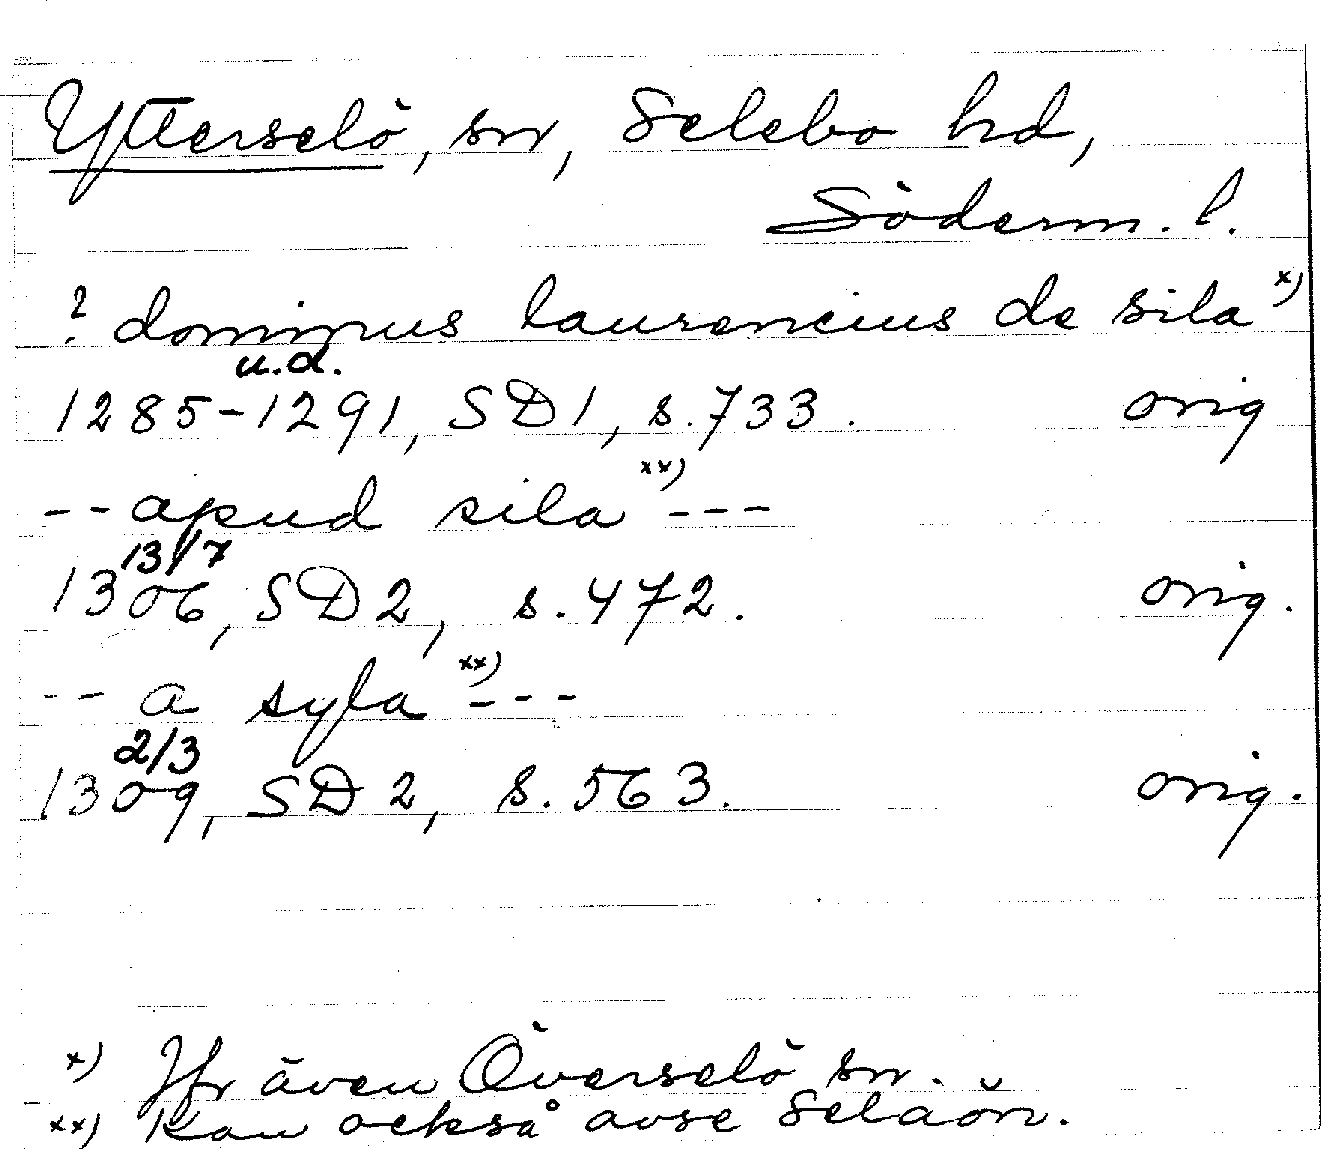 Ytterselö, sn, Selebo hd,
Söderm. l.
? dominus laurencius de sila x)
u.d.
1285-1291, SD1, s.733. orig
-- apud sila xx) ---
13/7
1306, SD2, s.472. orig.
-- a syla xx) ---
2/3
1309, SD2, s.563. orig.
x) Jfr även Överselö sn.
xx) Kan också avse Selaön.